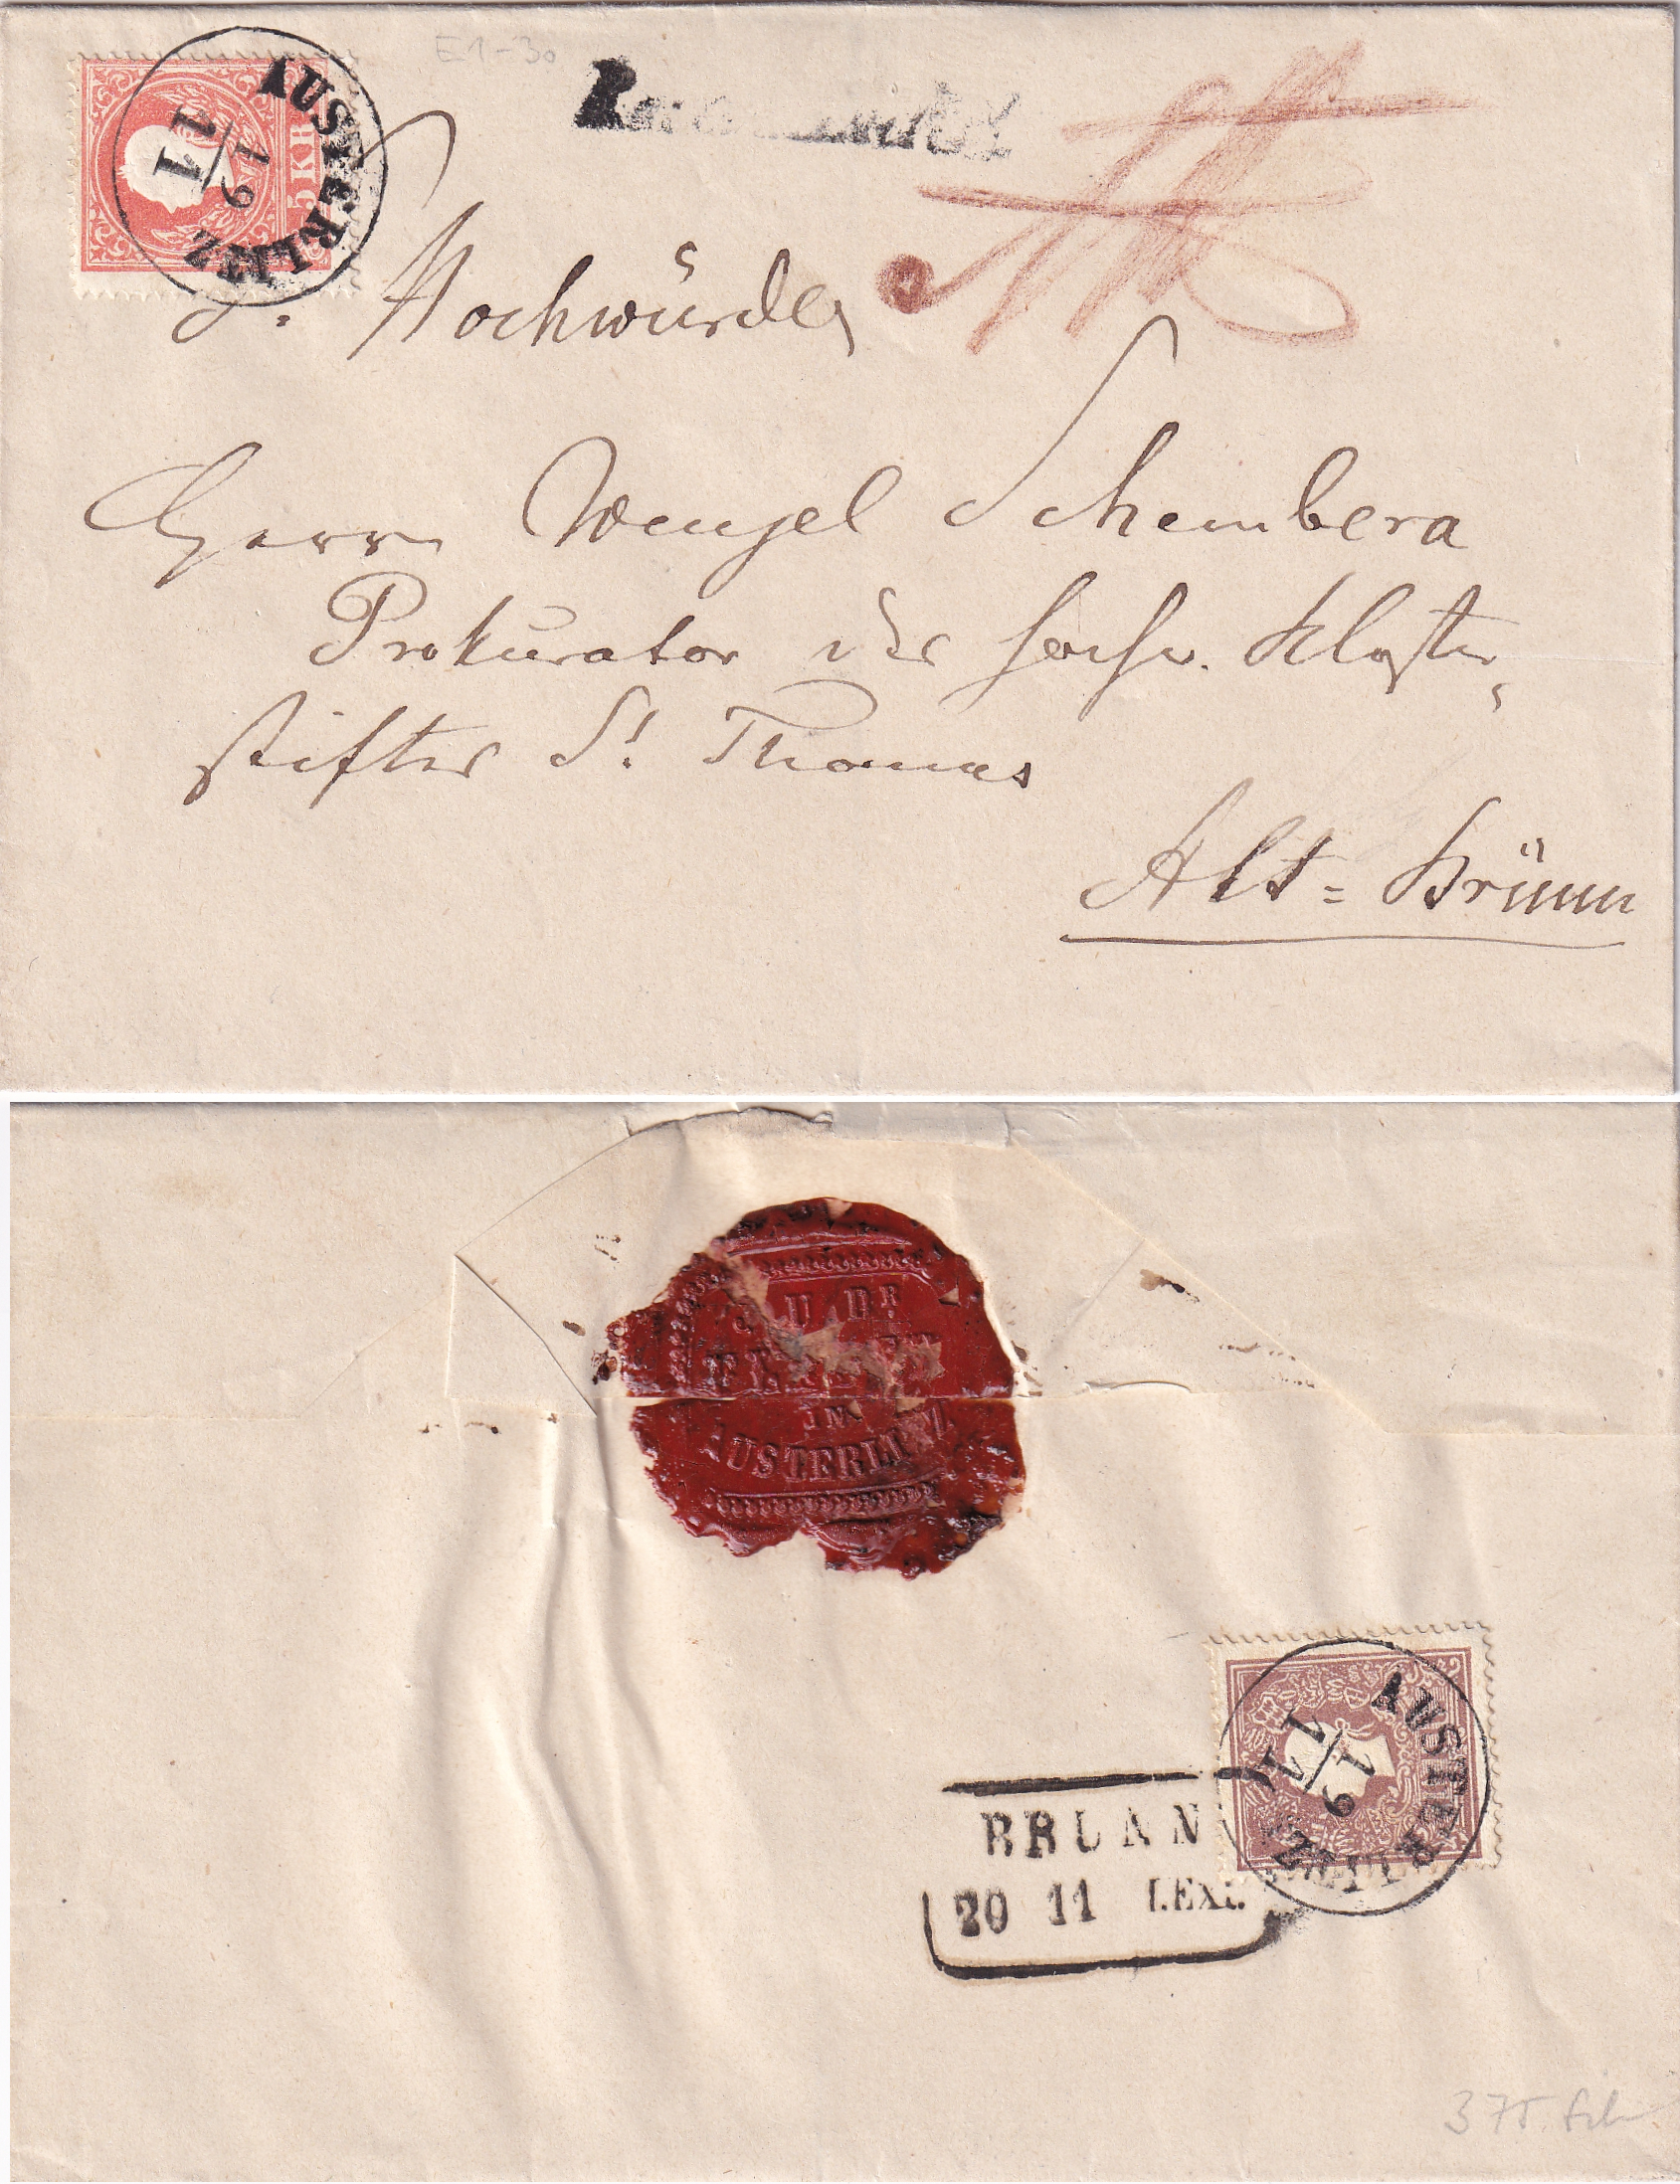 E1-30
AUSTERLITZ
19
11
5 KR
Sr. Hochwürden
Herrn Wenzel Schembera
Prokurator des hochw. Kloster-
stiftes St. Thomas
Alt=Brünn
J U DR
IN
AUSTERLITZ
AUSTERLITZ
19
11
BRUNN
20 11 I.EXP.
375.